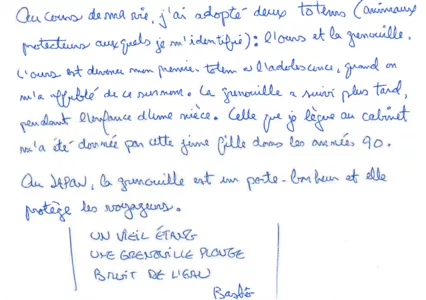 Au cours de ma vie, j'ai adopté deux totems (animaux
protecteurs auxquels je m'identifie) : l'ours et la grenouille.
L'ours est devenu mon premier totem à l'adolescence, quand on
m'a affublé de ce surnom. La grenouille a suivi plus tard,
pendant l'enfance d'une nièce. Celle que je lègue au cabinet
m'a été donnée par cette jeune fille dans les années 90.
Au JAPAN, la grenouille est un porte-bonheur et elle
protège les voyageurs.
UN VIEIL ÉTANG
UNE GRENOUILLE PLONGE
BRUIT DE L'EAU
Bashô